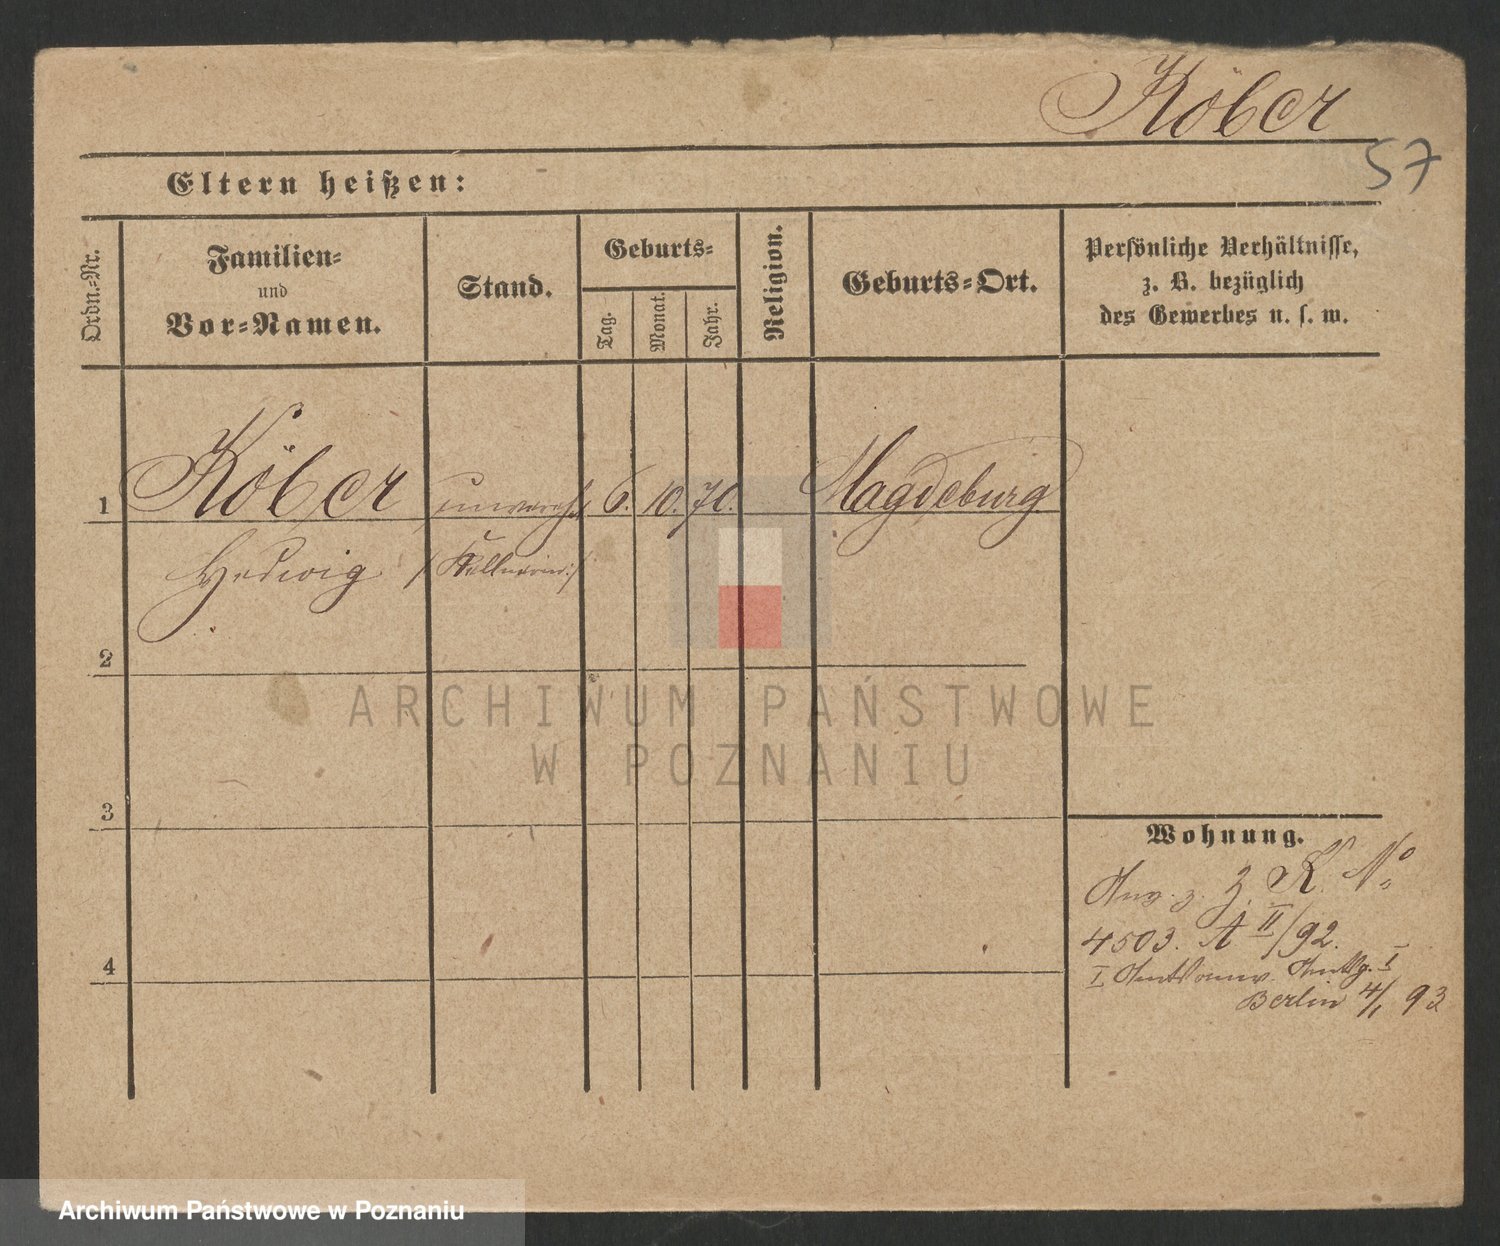 Köber
57
Eltern heißen:
Ordn.-Nr.
Familien-
und
Vor-Namen.
Stand.
Geburts-
Tag.
Monat.
Jahr.
Religion.
Geburts-Ort.
Persönliche Verhältnisse,
z. B. bezüglich
des Gewerbes u. s. w.
1
Köber
unvereh.
6.
10.
70.
Magdeburg
Hedwig
/Kellnerin:/
2
3
4
Wohnung.
z. K. No
4503. A II/92.
I I
Berlin 4/1 93
ARCHIWUM PAŃSTWOWE
W POZNANIU
Archiwum Państwowe w Poznaniu